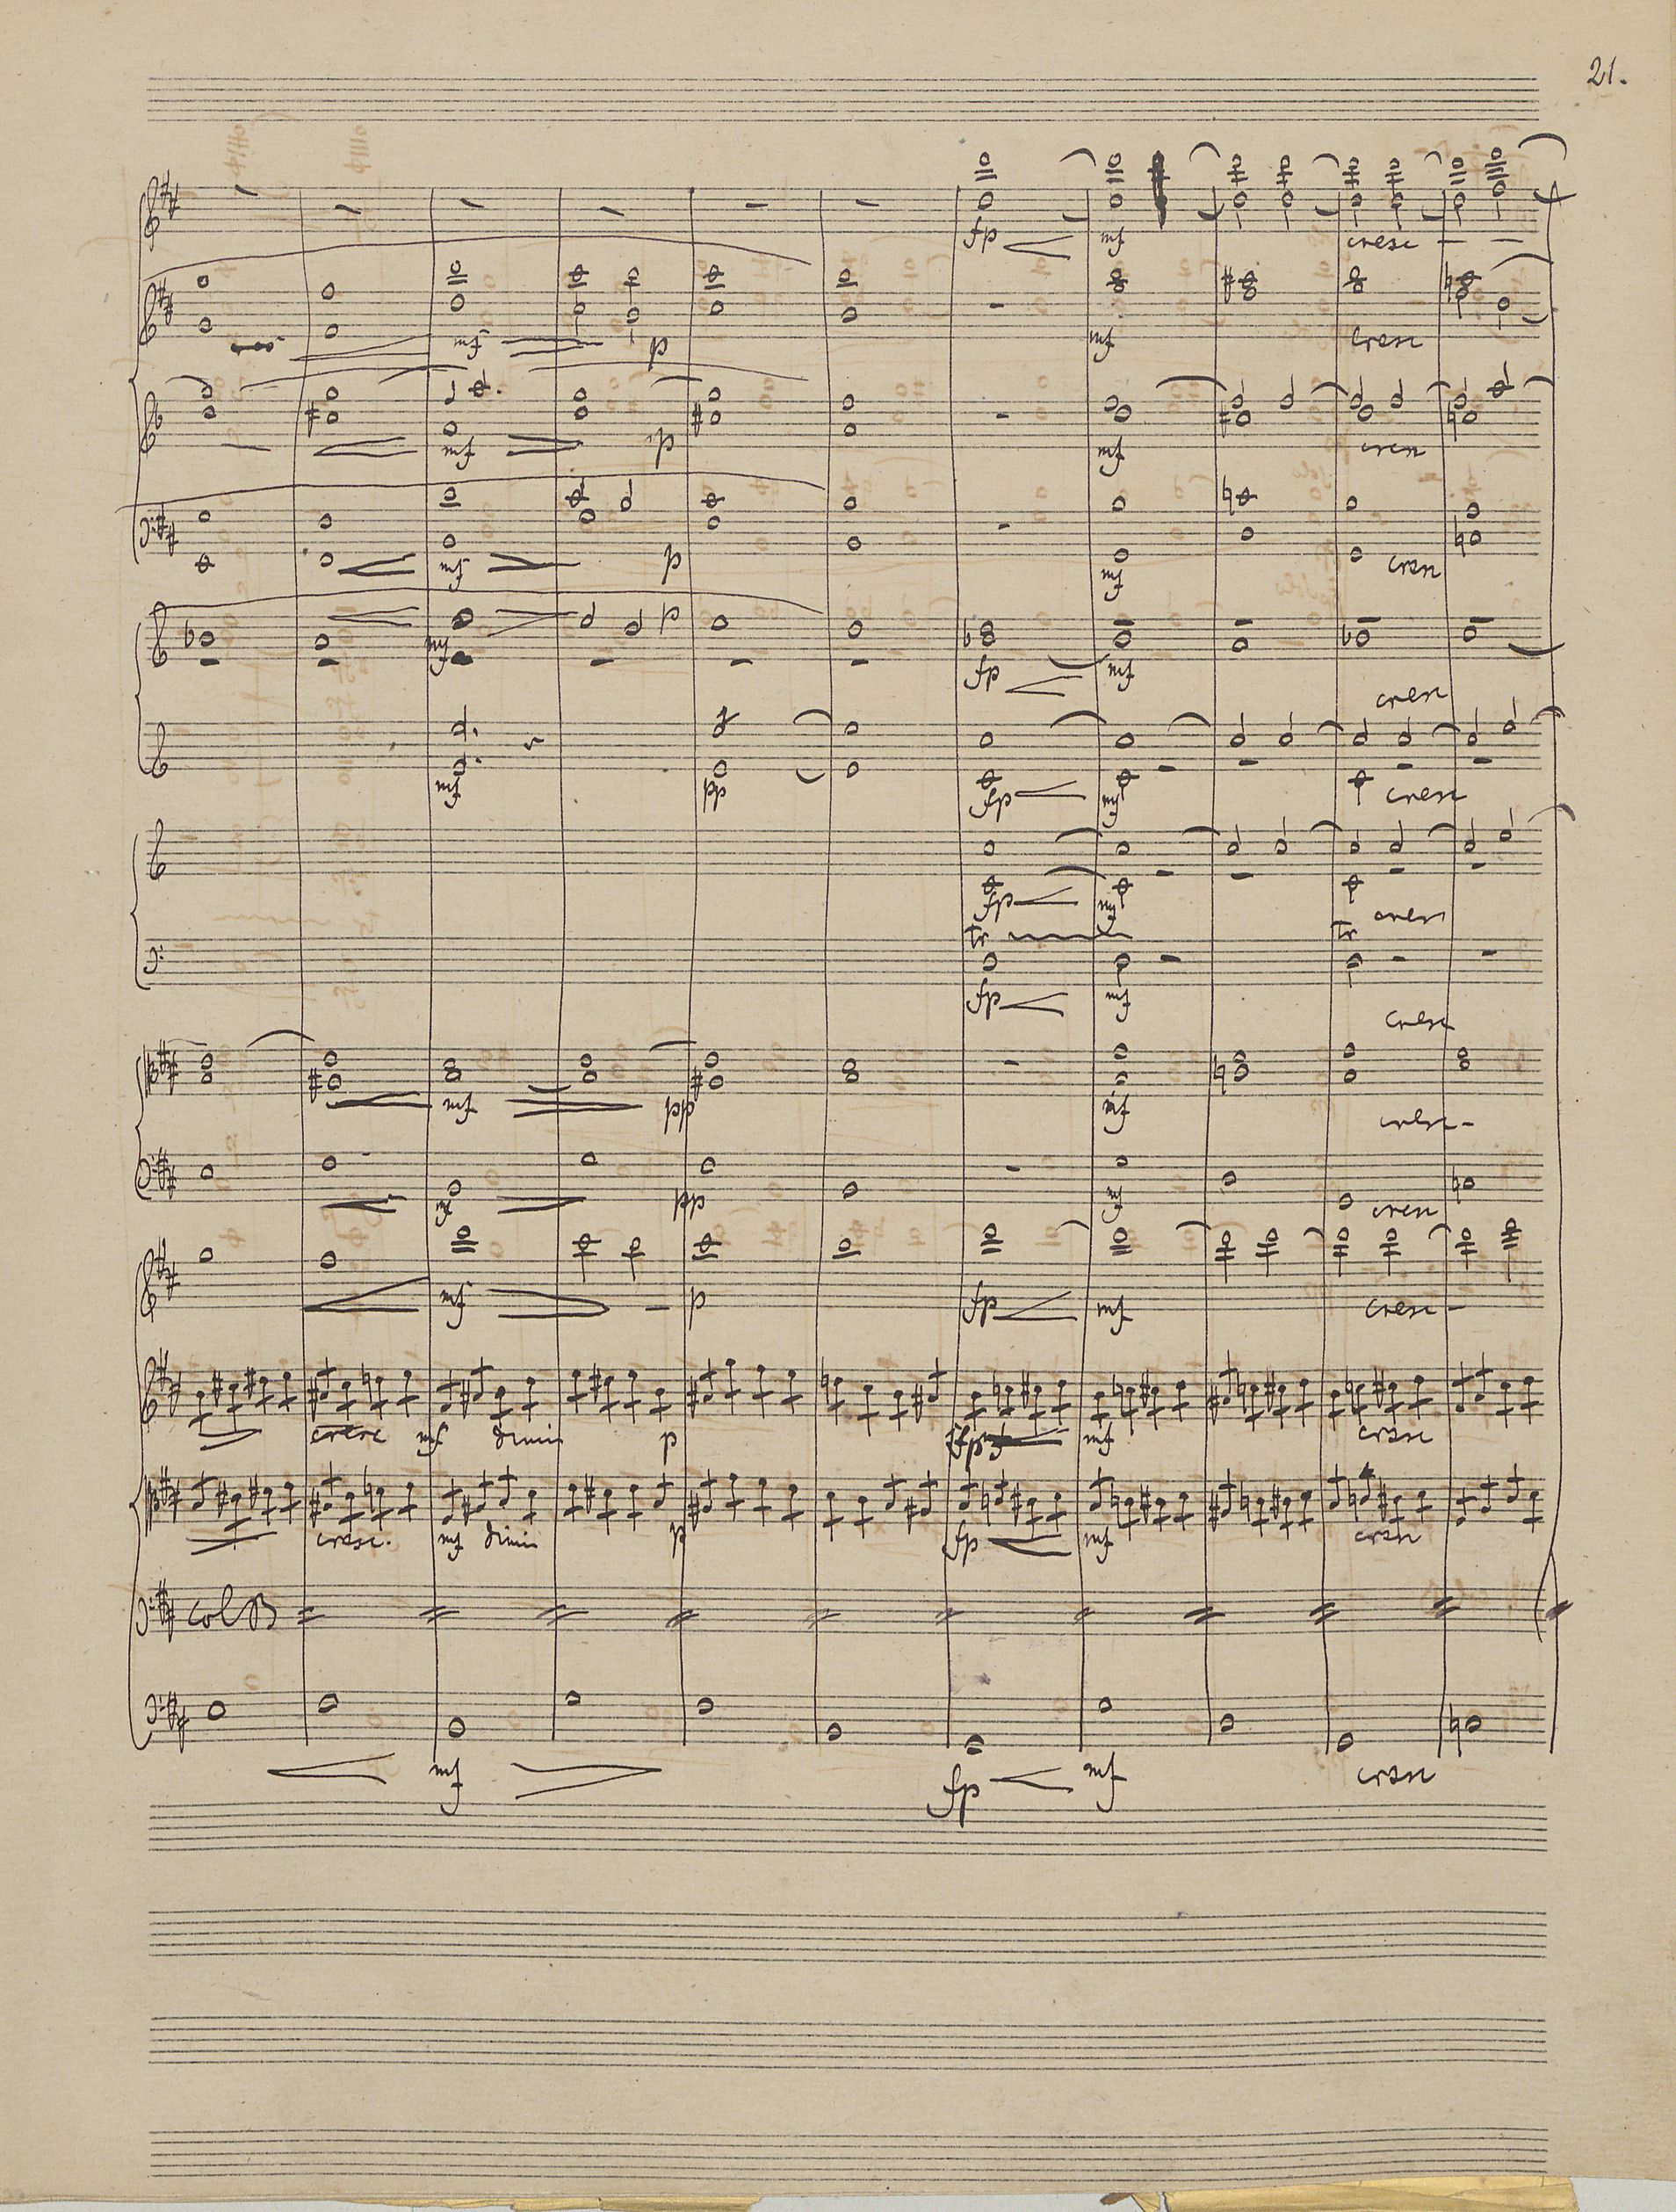 21.
fp mf cresc - -
mf p mf cresc
mf p mf cresc
mf p mf cresc
p
mf fp mf cresc
mf pp fp mf cresc
fp mf cresc
tr tr
fp mf cresc
mf pp mf cresc-
mf pp mf cresc
mf p fp mf cresc-
cresc mf dimin p fp mf cresc
cresc. mf dimin p fp mf cresc
col B
mf fp mf cresc